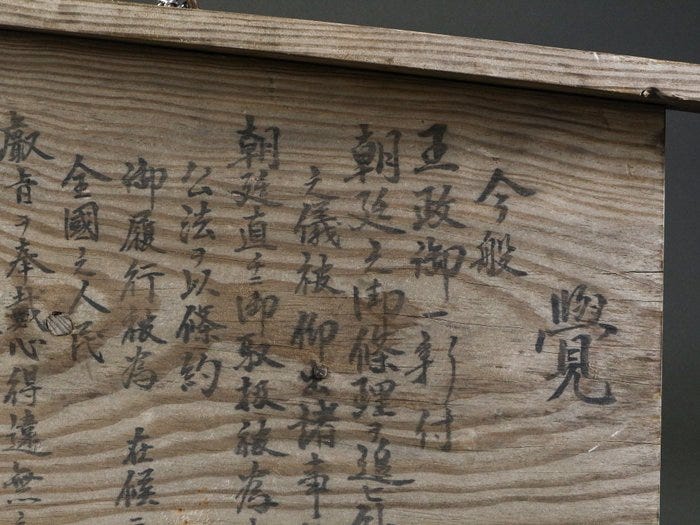 覺
今般
王政御一新付
朝廷之御條理ヲ追ヒ
之儀被仰出諸事
朝廷直チニ御取扱被為
公法ヲ以條約
御履行被為 在候ニ
全國之人民
叡旨ヲ奉戴心得違無